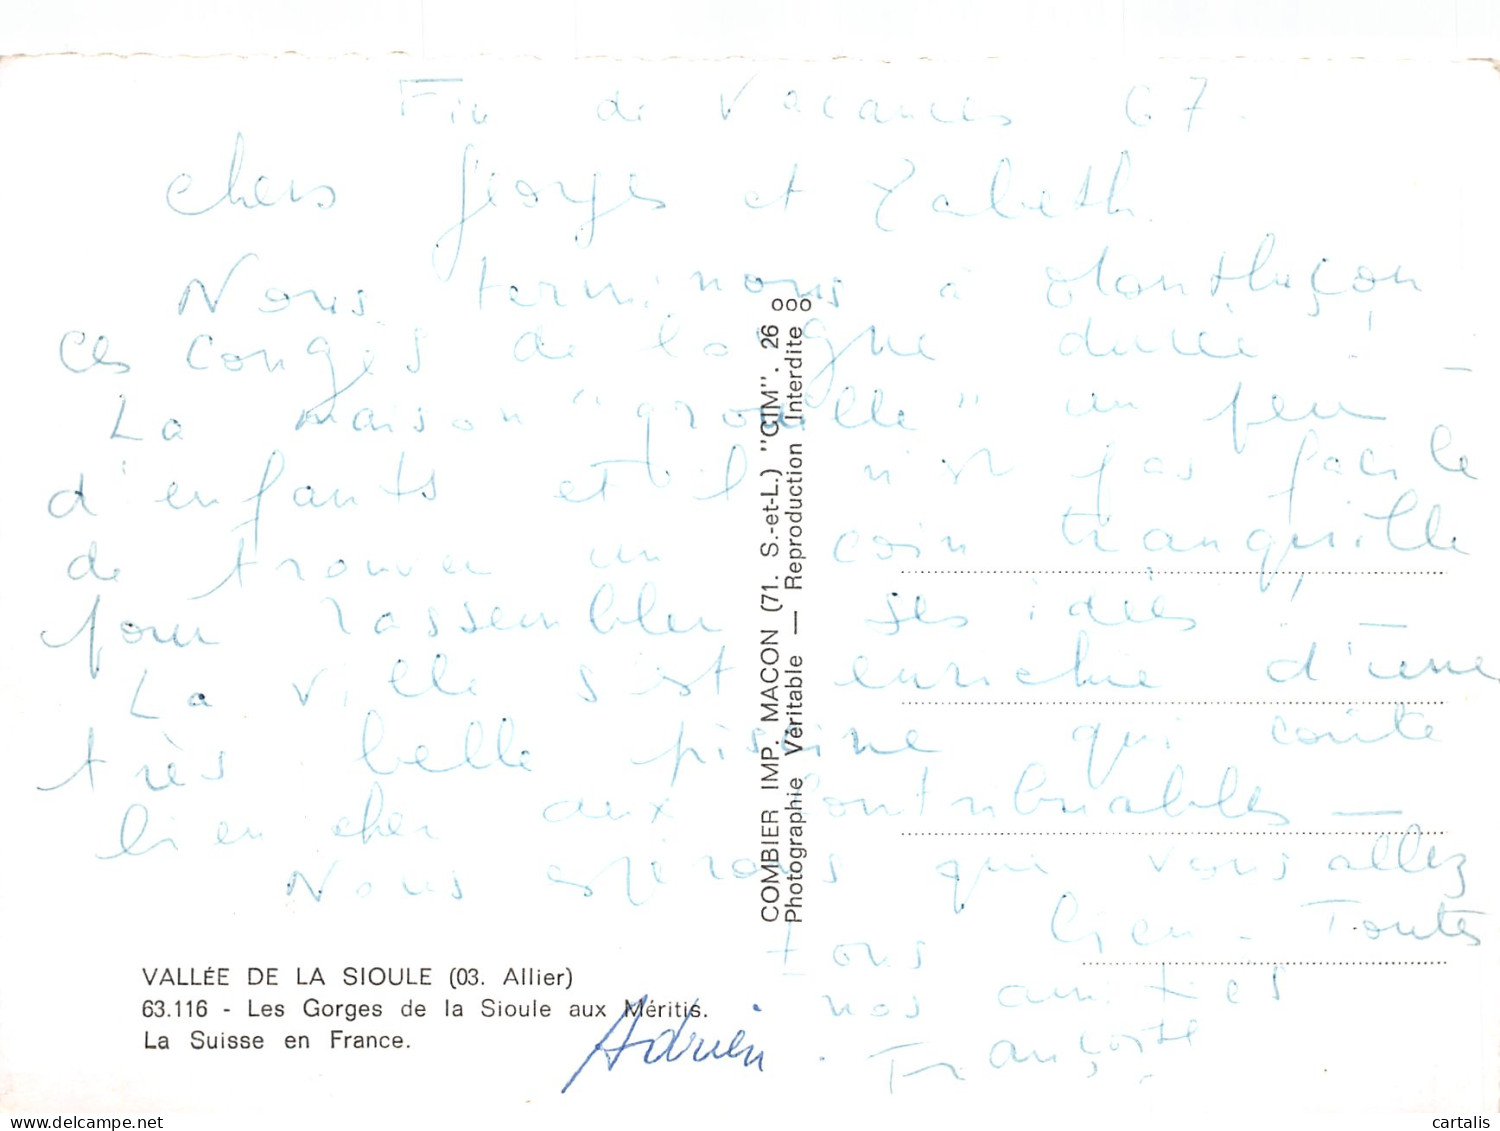 Fin de Vacances 67.
Chers Georges et Zabeth
Nous terminons à Montluçon
ces congés de longue durée ! -
La maison "grouille" un peu
d'enfants et il n'est pas facile
de trouver un coin tranquille
pour rassembler ses idées !
La ville s'est enrichie d'une
très belle piscine qui coûte
bien cher aux contribuables —
Nous espérons que vous allez
tous bien - Toutes
nos amitiés
Adrien . Françoise
COMBIER IMP. MACON (71. S.-et-L.) "CIM". 26 ooo
Photographie Véritable — Reproduction Interdite
VALLÉE DE LA SIOULE (03. Allier)
63.116 - Les Gorges de la Sioule aux Méritis.
La Suisse en France.
delcampe.net
cartalis